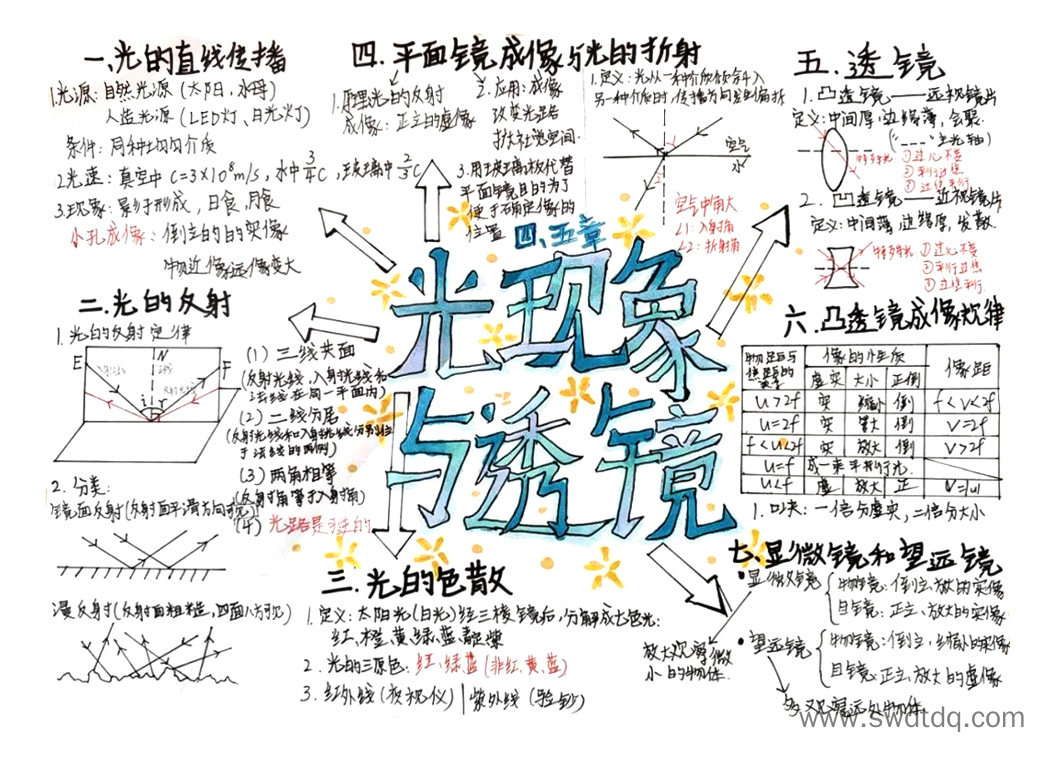 四、五章
光现象
与透镜
一、光的直线传播
1.光源:自然光源(太阳,水母)
人造光源(LED灯、日光灯)
条件:同种均匀介质
2.光速:真空中 c=3×10⁸m/s,水中3/4C,玻璃中2/3C
3.现象:影子形成,日食,月食
小孔成像:倒立的的实像
物近像远像变大
二.光的反射
1.光的反射定律
E
N
F
i
r
(1)三线共面
(反射光线,入射光线和
法线在同一平面内)
(2)二线分居
(反射光线和入射光线分别位
于法线的两侧)
(3)两角相等
(反射角等于入射角)
(4)光路是可逆的
2.分类:
镜面反射(反射面平滑方向可
漫反射(反射面粗糙,四面八方可见)
三.光的色散
1.定义:太阳光(白光)经三棱镜后,分解成七色光:
红,橙,黄,绿,蓝,靛,紫
2.光的三原色:红,绿,蓝(非红,黄,蓝)
3.红外线(夜视仪)|紫外线(验钞)
四.平面镜成像与光的折射
1.原理:光的反射
成像:正立的虚像
2.应用:成像
改变光路
扩大视觉空间
3.用玻璃板代替
平面镜,目的为了
便于确定像的
位置
1.定义:光从一种介质斜入
另一种介质时,传播方向发生偏折
空气
水
空气中角大
∠1:入射角
∠2:折射角
五.透镜
1.凸透镜——远视镜片
定义:中间厚,边缘薄,会聚.
("----"主光轴)
特殊光
①过心不变
②平行过焦
③过焦平行
2.凹透镜——近视镜片
定义:中间薄,边缘厚,发散.
特殊光
①过心不变
六.凸透镜成像规律
物距与焦距的关系 像的性质 像距
虚实 大小 正倒
u>2f 实 缩小 倒 f<v<2f
u=2f 实 等大 倒 v=2f
f<u<2f 实 放大 倒 v>2f
u=f 成一束平行光.
u<f 虚 放大 正 v=|u|
1.口诀:一倍分虚实,二倍分大小
七.显微镜和望远镜
显微镜 物镜:倒立,放大的实像
目镜:正立、放大的实像
放大观察微
小的物体.
望远镜 物镜:倒立,缩小的实像
目镜:正立,放大的虚像
www.swdtdq.com